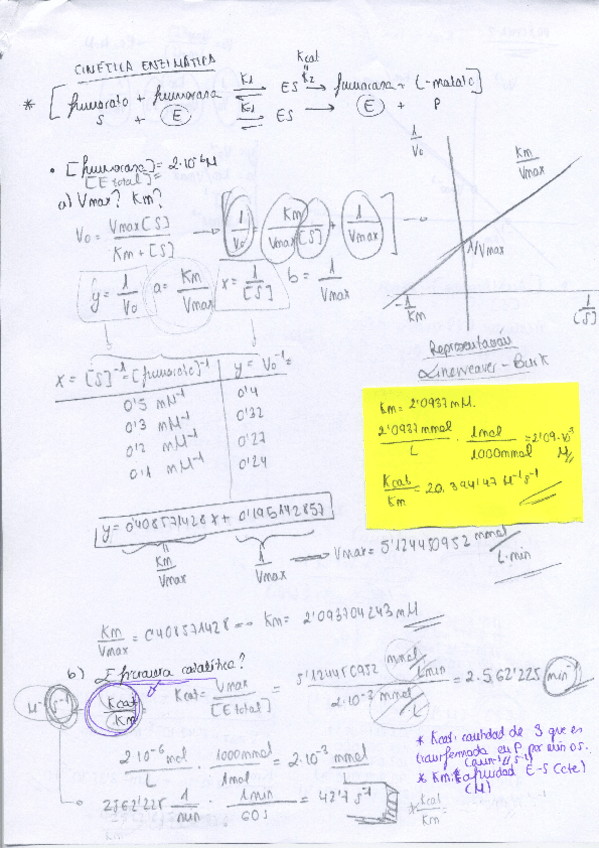 CINÉTICA ENZIMÁTICA
* [fumarato + fumarasa ⇌ ES → fumarasa + L-malato]
K1
Kcat
K2
S + E ⇌ ES → E + P
K-1
• [fumarasa] = 2·10⁻⁶ M
[E total] =
a) Vmax? Km?
V0 = Vmax[S] / Km + [S] → [1/V0 = Km/Vmax [S] + 1/Vmax] →
y = 1/V0 a = Km/Vmax x = 1/[S] b = 1/Vmax
1/V0
Km/Vmax
1/Vmax
-1/Km
1/[S]
Representación
Lineweaver-Burk
x = [S]⁻¹ = [fumarato]⁻¹ y = V0⁻¹ =
0'5 mM⁻¹ 0'4
0'3 mM⁻¹ 0'32
0'2 mM⁻¹ 0'27
0'1 mM⁻¹ 0'24
Km = 2'0937 mM.
2'0937 mmol/L · 1mol/1000mmol = 2'09·10⁻³ M
Kcat/Km = 20.394'147 M⁻¹s⁻¹
y = 0'408571428 x + 0'195142857
Km/Vmax 1/Vmax → Vmax = 5'124450952 mmol/L·min
Km/Vmax = 0'408571428 → Km = 2'093704243 mM
b) Eficacia catalítica?
M⁻¹ s⁻¹ Kcat/Km = Kcat = Vmax/[E total] = 5'124450952 mmol/L·min / 2·10⁻³ mmol/L = 2.562'225 min⁻¹
2·10⁻⁶ mol/L · 1000mmol/1mol = 2·10⁻³ mmol/L
2562'225 1/min · 1min/60s = 42'7 s⁻¹
* Kcat: cantidad de S que es
transformada en P por min o s.
(min⁻¹, s⁻¹)
* Km: afinidad E-S (cte)
(M)
* Kcat/Km =